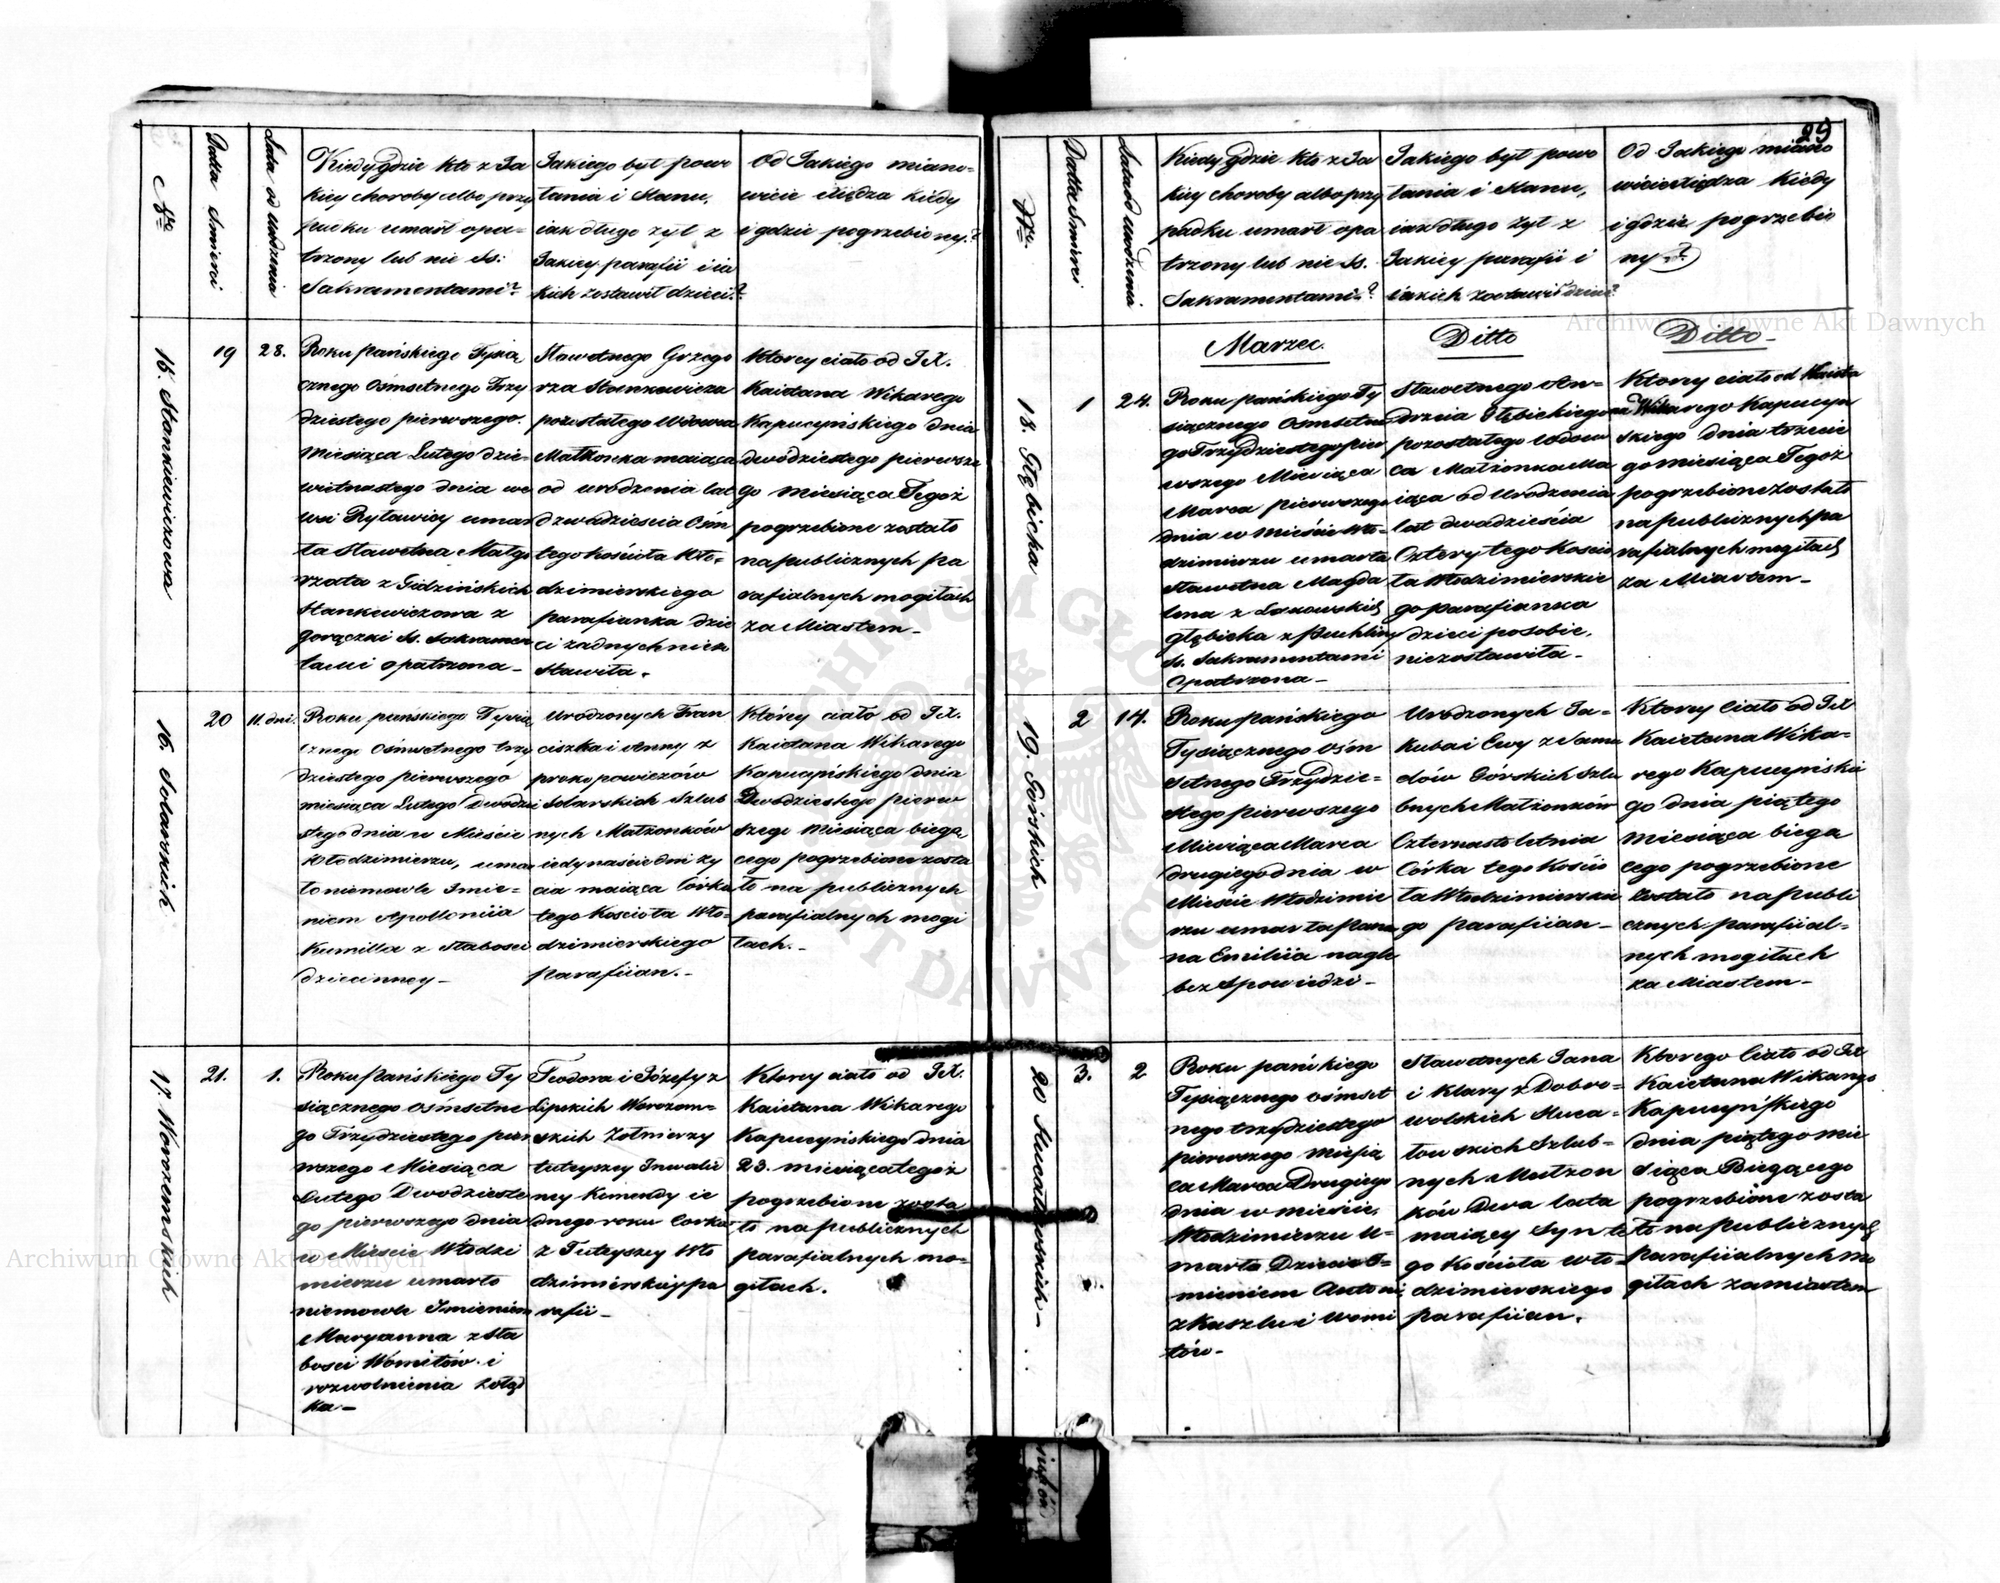 29
Nro
Datta Śmierci
Lata od urodzenia
Kiedy gdzie kto z Ja
kiey choroby albo przy
padku umarł opa-
trzony lub nie Ss:
Sakramentami?
Jakiego był powo
łania i stanu,
iak długo żył z
Jakiey parafii i ia
kich zostawił dzieci?
Od Jakiego miano-
wicie Xiędza kiedy
i gdzie pogrzebiony?
15. Stankiewiczowa
19
28.
Roku Pańskiego Tysią
cznego Ośmsetnego Trzy
dziestego pierwszego.
Miesiąca Lutego dzie-
wietnastego dnia we
wsi Ryławicy umar
ła Sławetna Małgo
rzata z Gidzińskich
Stankiewiczowa z
gorączki Ss. Sakramen
tami opatrzona -
Sławetnego Grzego
rza Stankiewicza
pozostałego Wdowca
Małżonka maiąca
od urodzenia lat
dwadzieścia Ośm
tego kościoła Wło-
dzimierskiego
parafianka dzie
ci żadnych niezo
stawiła.
Ktorey ciało od JX.
Kaietana Wikarego
Kapucyńskiego dnia
dwódziestego pierwsze
go Miesiąca Tegoż
pogrzebione zostało
na publicznych pa
rafialnych mogiłach
za Miastem -
16. Solarskich
20
11. dni.
Roku pańskiego Tysią
cznego Ośmsetnego trzy
dziestego pierwszego
miesiąca Lutego Dwodzie
stego dnia w Mieście
Włodzimierzu, umar
ło niemowle Imie-
niem Apollonija
Kamilla z słabości
dziecinney -
Urodzonych Fran
ciszka i Anny z
prokopowiczów
Solarskich Szlub
nych Małżonków
iedynaście dni ży
cia maiąca Córka
tego Kościoła Wło-
dzimierskiego
parafiian. -
Ktorey ciało od JX.
Kaietana Wikarego
Kapucyńskiego dnia
Dwodziestego pierw
szego Miesiąca bieżą
cego pogrzebione zosta
ło na publicznych
parafialnych mogi
łach. -
17. Worozemskich
21.
1.
Roku Pańskiego Ty
siącznego Ośmsetne
go Trzydziestego pier
wszego Miesiąca
Lutego Dwodzieste
go pierwszego dnia
w Mieście Włodzi
mierzu umarło
niemowle Imieniem
Maryanna z sła
bości Womitów i
rozwolnienia żołąd
ka -
Teodora i Józefy z
Lipskich Worozom-
skich Żołnierzy
tuteyszey Inwalid
ney Komendy ie
dnego roku Corka
z Tuteyszey Wło
dzimierskiey pa
rafii -
Ktorey ciało od JX.
Kaietana Wikarego
Kapucyńskiego dnia
23. miesiąca tegoż
pogrzebione zosta
ło na publicznych
parafialnych mo-
giłach.
Nro
Datta Śmierci
Lata od urodzenia
Kiedy gdzie kto z Ja
kiey choroby albo przy
padku umarł opa
trzony lub nie Ss.
Sakramentami?
Jakiego był powo
łania i stanu,
iak długo żył z
Jakiey parafii i
iakich zostawił dzieci?
Od Jakiego miano
wicie Xiędza kiedy
i gdzie pogrzebio
ny?
Marzec.
Ditto
Ditto -
18. Głębicka
1
24.
Roku pańskiego Ty
siącznego Ośmsetne
go Trzydziestego pier
wszego Miesiąca
Marca pierwszego
dnia w Mieście Wło-
dzimierzu umarła
Sławetna Magda
lena z
Głębicka z Puchliny
Ss. Sakramentami
Opatrzona -
Sławetnego An-
drzeia Głębickiego
pozostałego wdow
ca Małżonka Ma
iąca od Urodzenia
lat dwadzieścia
Cztery tego Kościo
ła Włodzimierskie
go parafianka
dzieci po sobie,
niezostawiła -
Ktorey ciało od Kaieta
na Wikarego Kapucyn
skiego dnia trzecie
go miesiąca Tegoż
pogrzebione zostało
na publicznych pa
rafialnych mogiłach
za Miastem -
19. Górskich
2
14.
Roku Pańskiego
Tysiącznego Ośm
setnego Trzydzie-
stego pierwszego
Miesiąca Marca
drugiego dnia w
Mieście Włodzimie
rzu umarła Pan
na Emiliia nagle
bez Spowiedzi -
Urodzonych Ja-
kuba i Ewy z
Górskich Szlu
bnych Małżonków
Czternastoletnia
Córka tego Kościo
ła Włodzimierskie
go parafiian -
Ktorey Ciało od JX
Kaietana Wika-
rego Kapucyńskie
go dnia piątego
Miesiąca bieżą
cego pogrzebione
Zostało na publi
cznych parafiial-
nych mogiłach
za Miastem -
20
3.
2
Roku pańskiego
Tysiącznego ośmset
nego trzydziestego
pierwszego Miesią
ca Marca Drugiego
dnia w mieście
Włodzimierzu U-
marło Dziecie I-
mieniem Antoni
z Kaszlu i Womi
tów -
Sławetnych Jana
i Klary z Dobro-
wolskich
Szlub-
nych Małżon
ków Dwa lata
maiący Syn te
go Kościoła Wło-
dzimierskiego
parafiian.
Ktorego Ciało od JX
Kaietana Wikarego
Kapucyńskiego
dnia piątego mie
siąca Bieżącego
pogrzebione zosta
ło na publicznych
Parafiialnych mo
giłach za miastem
Archiwum Główne Akt Dawnych
Archiwum Główne Akt Dawnych